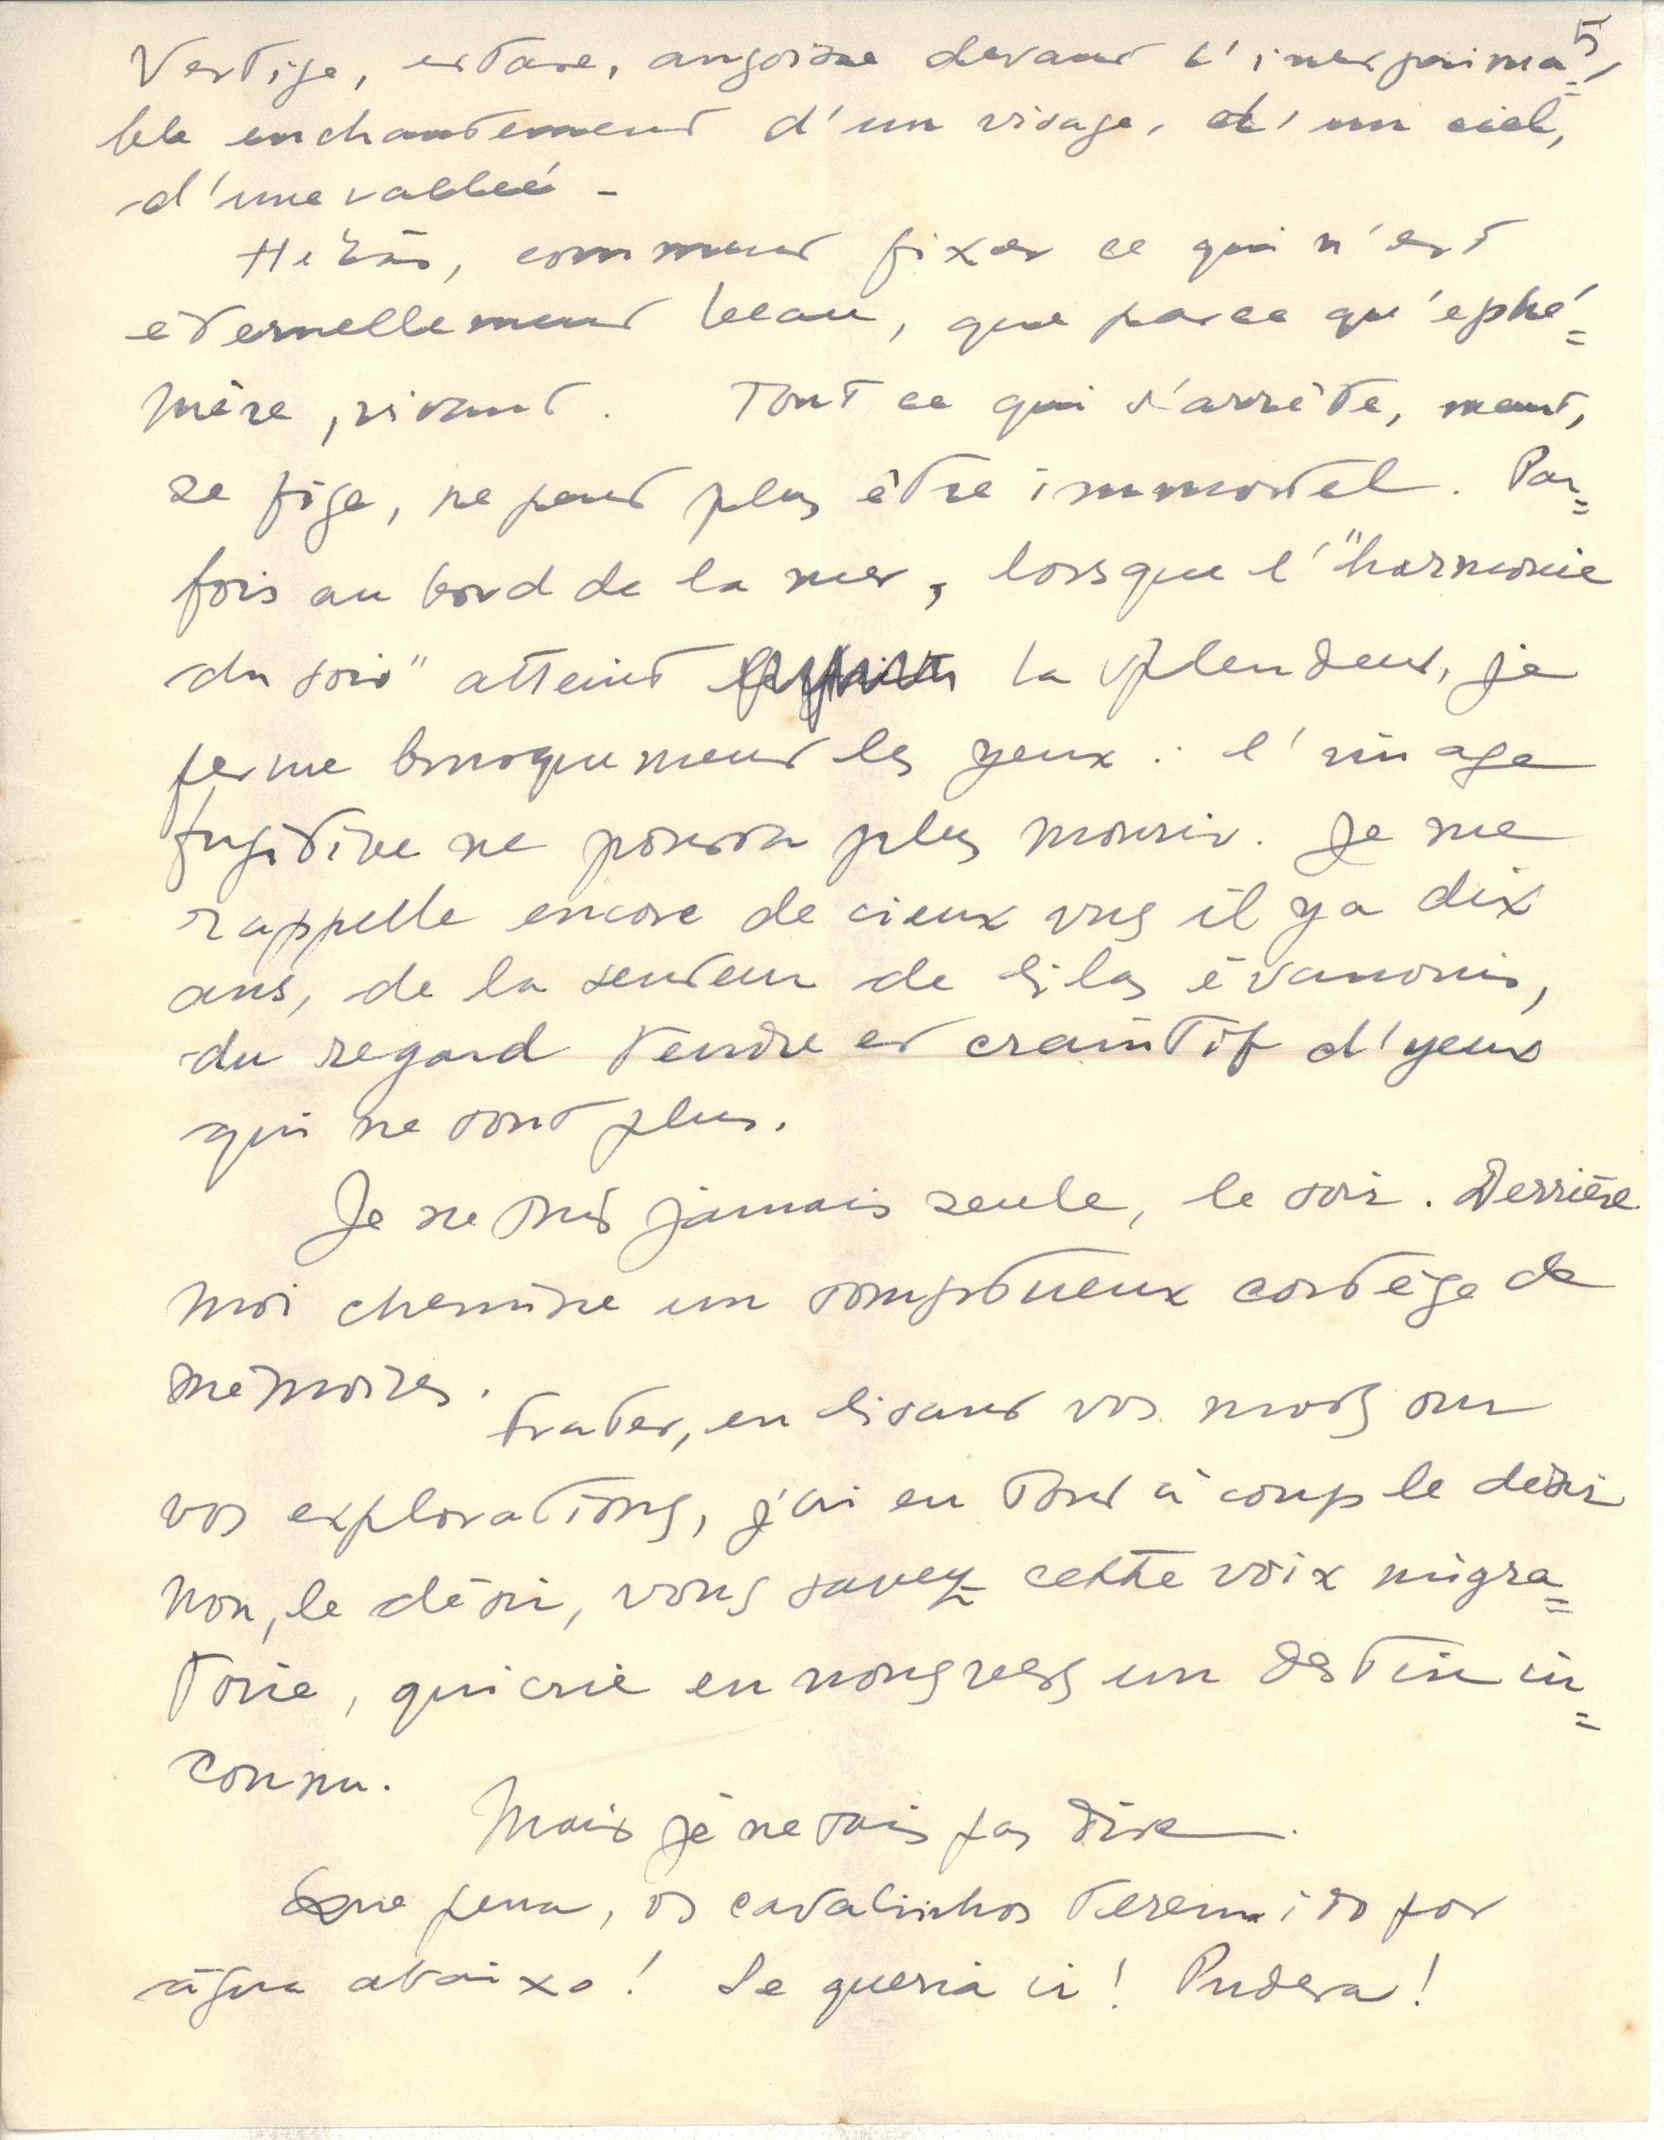 5
Vertige, extase, angoisse devant l'inexprima=
ble enchantement d'un visage, d'un ciel,
d'une vallée -
Hélas, comment fixer ce qui n'est
eternellement beau, que parce qu'ephé=
mère, vivant. Tout ce qui s'arrête, meurt,
se fige, ne peut plus être immortel. Par=
fois au bord de la mer, lorsque l'"harmonie
du soir" atteint la splendeur, je
ferme brusquement les yeux : l'image
fugitive ne pourra plus mourir. Je me
rappelle encore de cieux vus il y a dix
ans, de la senteur de lilas évanouis,
du regard tendre et craintif d'yeux
qui ne sont plus.
Je ne suis jamais seule, le soir. Derrière
moi chemine un somptueux cortège de
mémoires.
Frater, en lisant vos mots sur
vos explorations, j'ai eu tout à coup le désir
non, le désir, vous savez cette voix migra=
toire, qui crie en nous vers un destin in=
connu.
Mais je ne sais pas dire.
Que pena, os cavalinhos terem ido por
água abaixo! Se queria ir! Pudera!